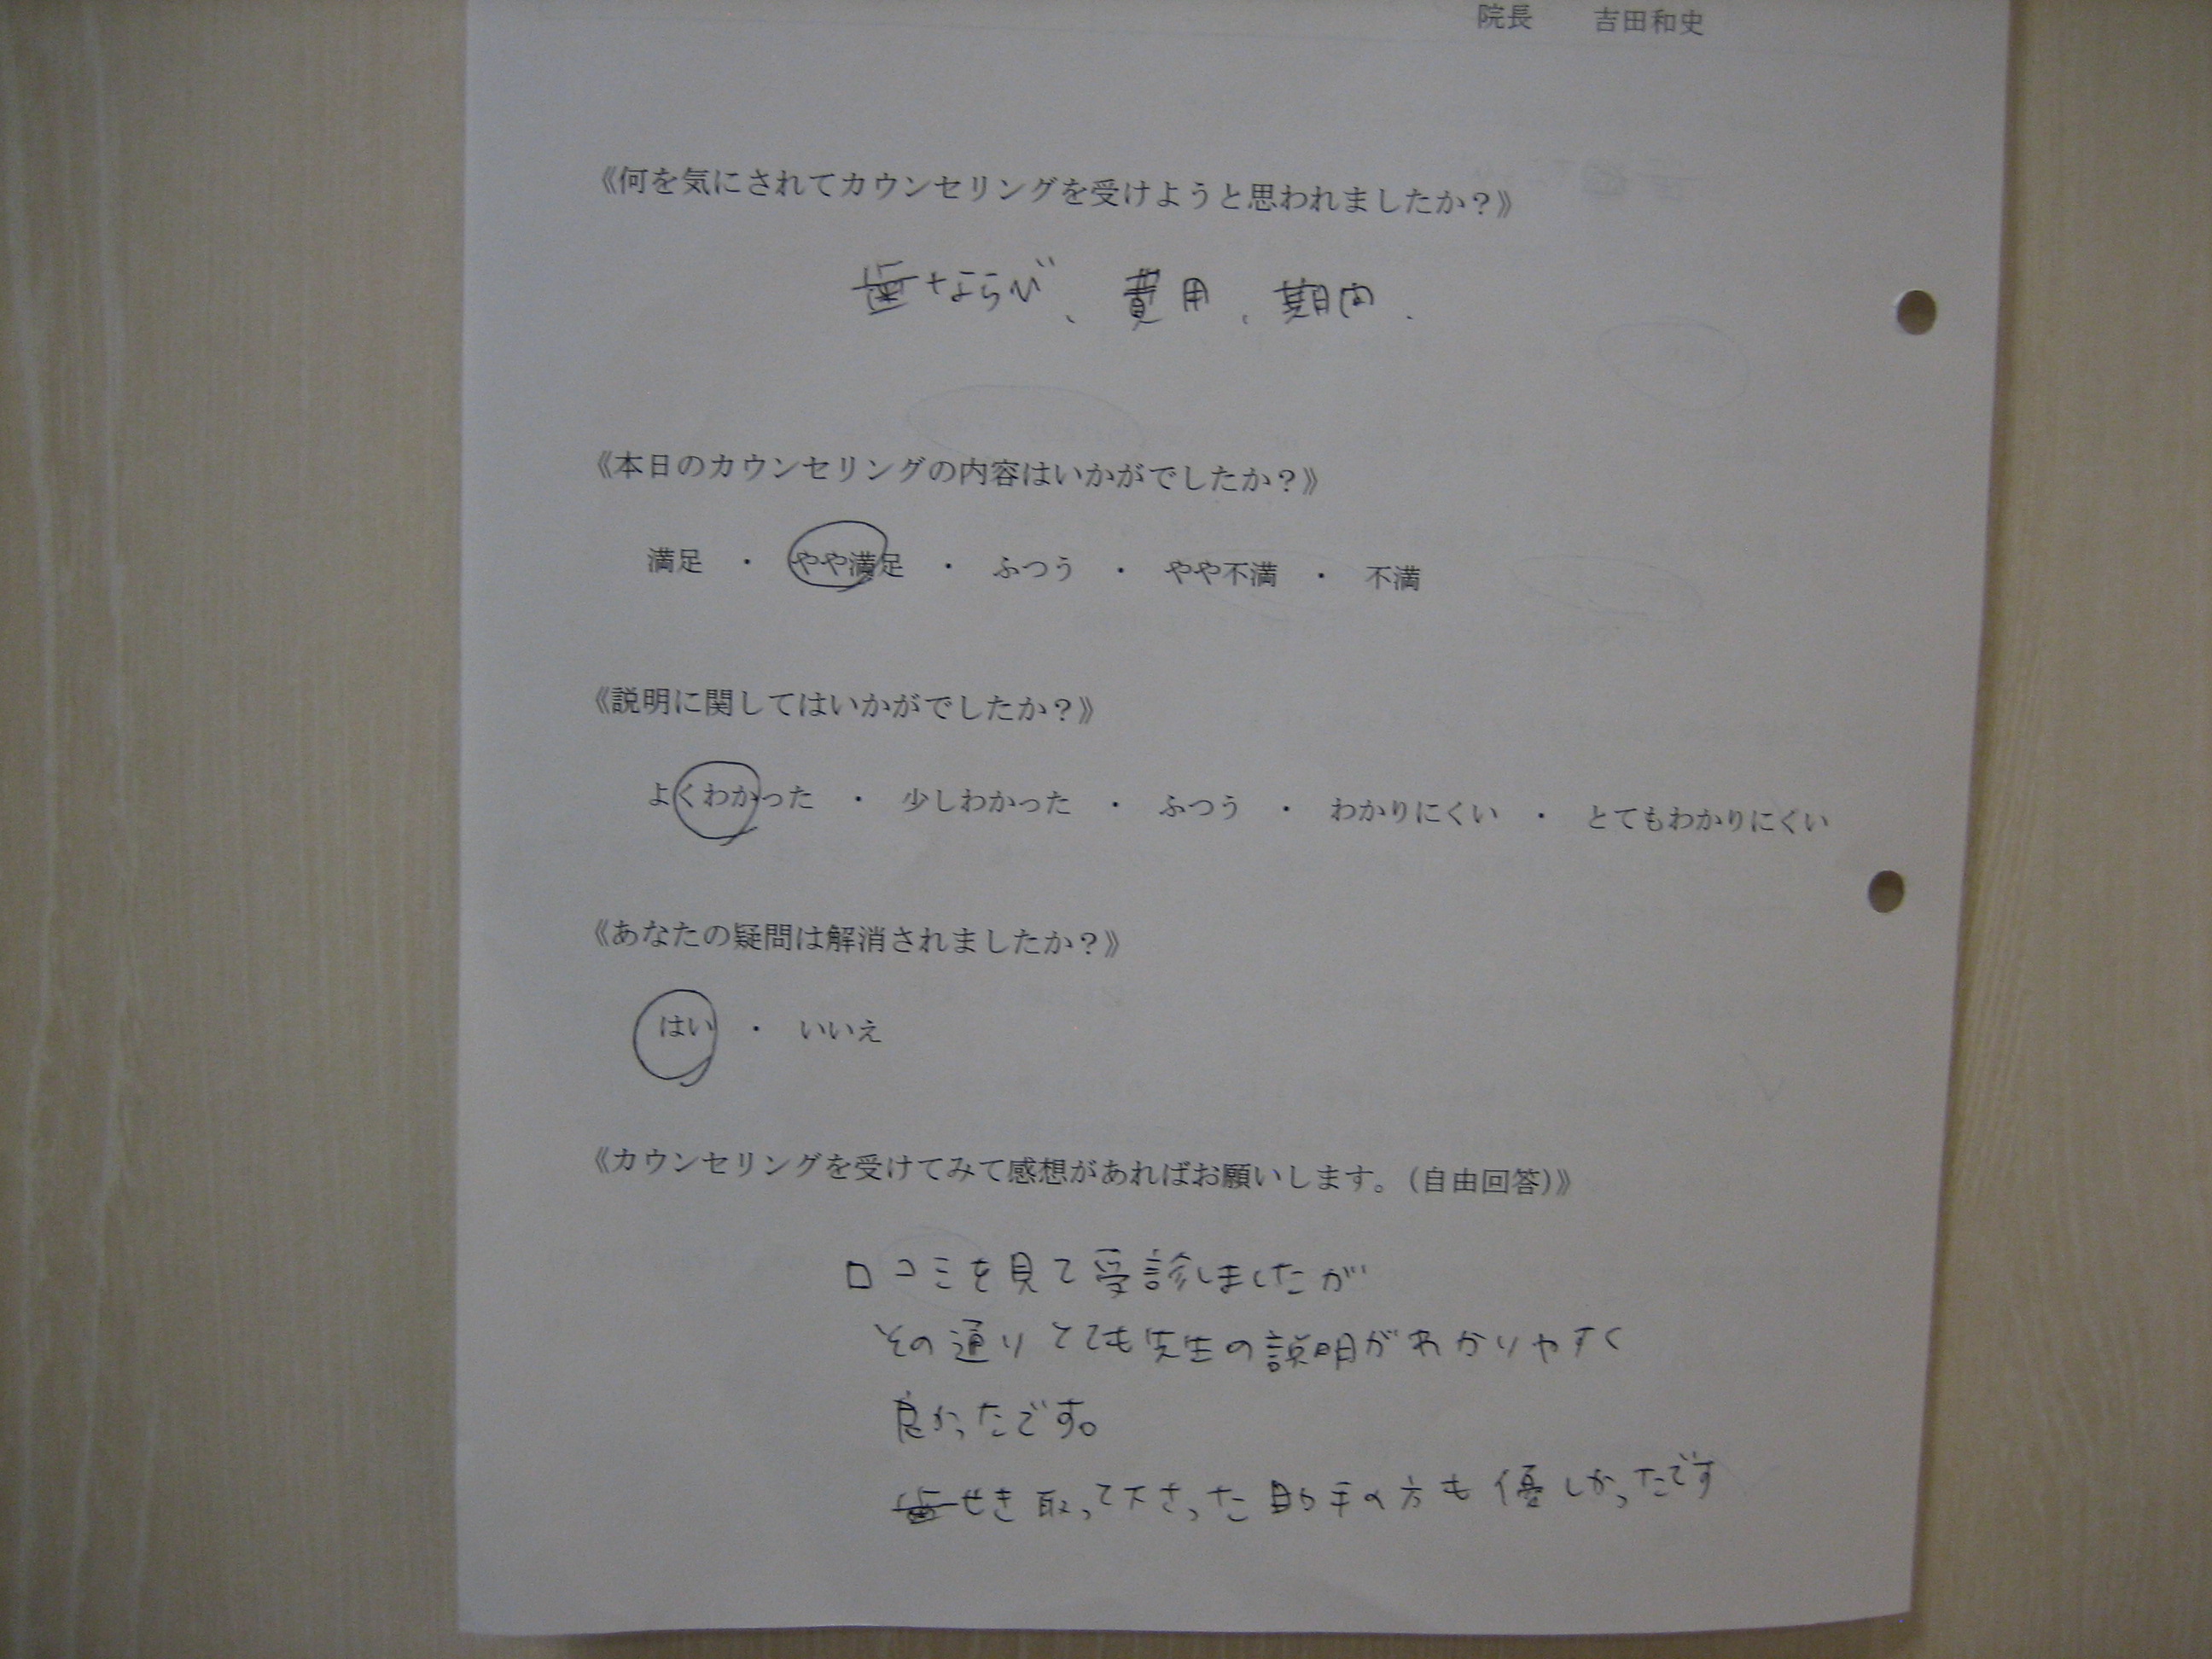 院長　吉田和史
《何を気にされてカウンセリングを受けようと思われましたか？》
歯ならび、費用、期間.
《本日のカウンセリングの内容はいかがでしたか？》
満足　・　やや満足　・　ふつう　・　やや不満　・　不満
《説明に関してはいかがでしたか？》
よくわかった　・　少しわかった　・　ふつう　・　わかりにくい　・　とてもわかりにくい
《あなたの疑問は解消されましたか？》
はい　・　いいえ
《カウンセリングを受けてみて感想があればお願いします。（自由回答）》
口コミを見て受診しましたが
その通りとても先生の説明がわかりやすく
良かったです。
歯せき取って下さった助手の方も優しかったです